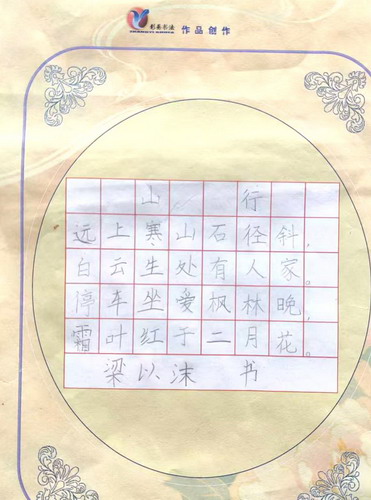 作品创作
山行
远上寒山石径斜，
白云生处有人家。
停车坐爱枫林晚，
霜叶红于二月花。
梁以沫 书